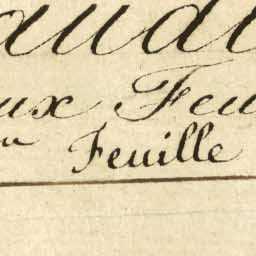 audi
ux Feu
n Feuille